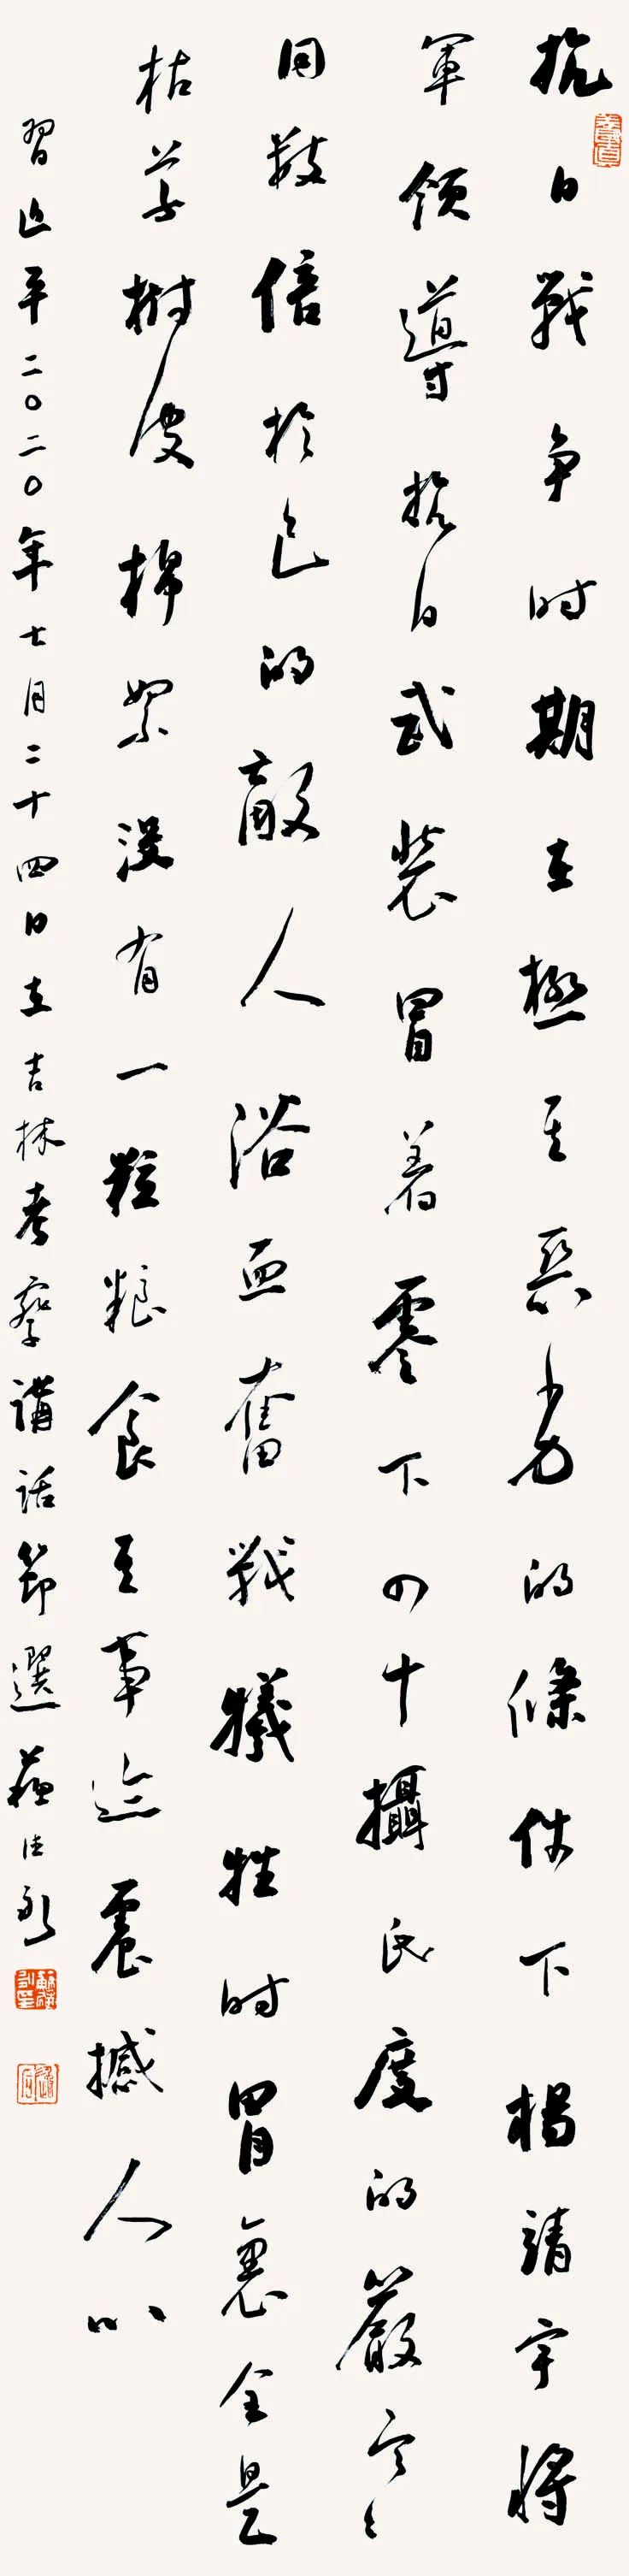 抗日戰争时期在極其惡劣的條件下楊靖宇將
軍領導抗日武裝冒着零下四十攝氏度的嚴寒
同數倍於己的敵人浴血奮戰犧牲时胃裏全是
枯草樹皮棉絮没有一粒糧食其事迹震撼人心
習近平二〇二〇年七月二十四日在吉林考察講話節選蘇